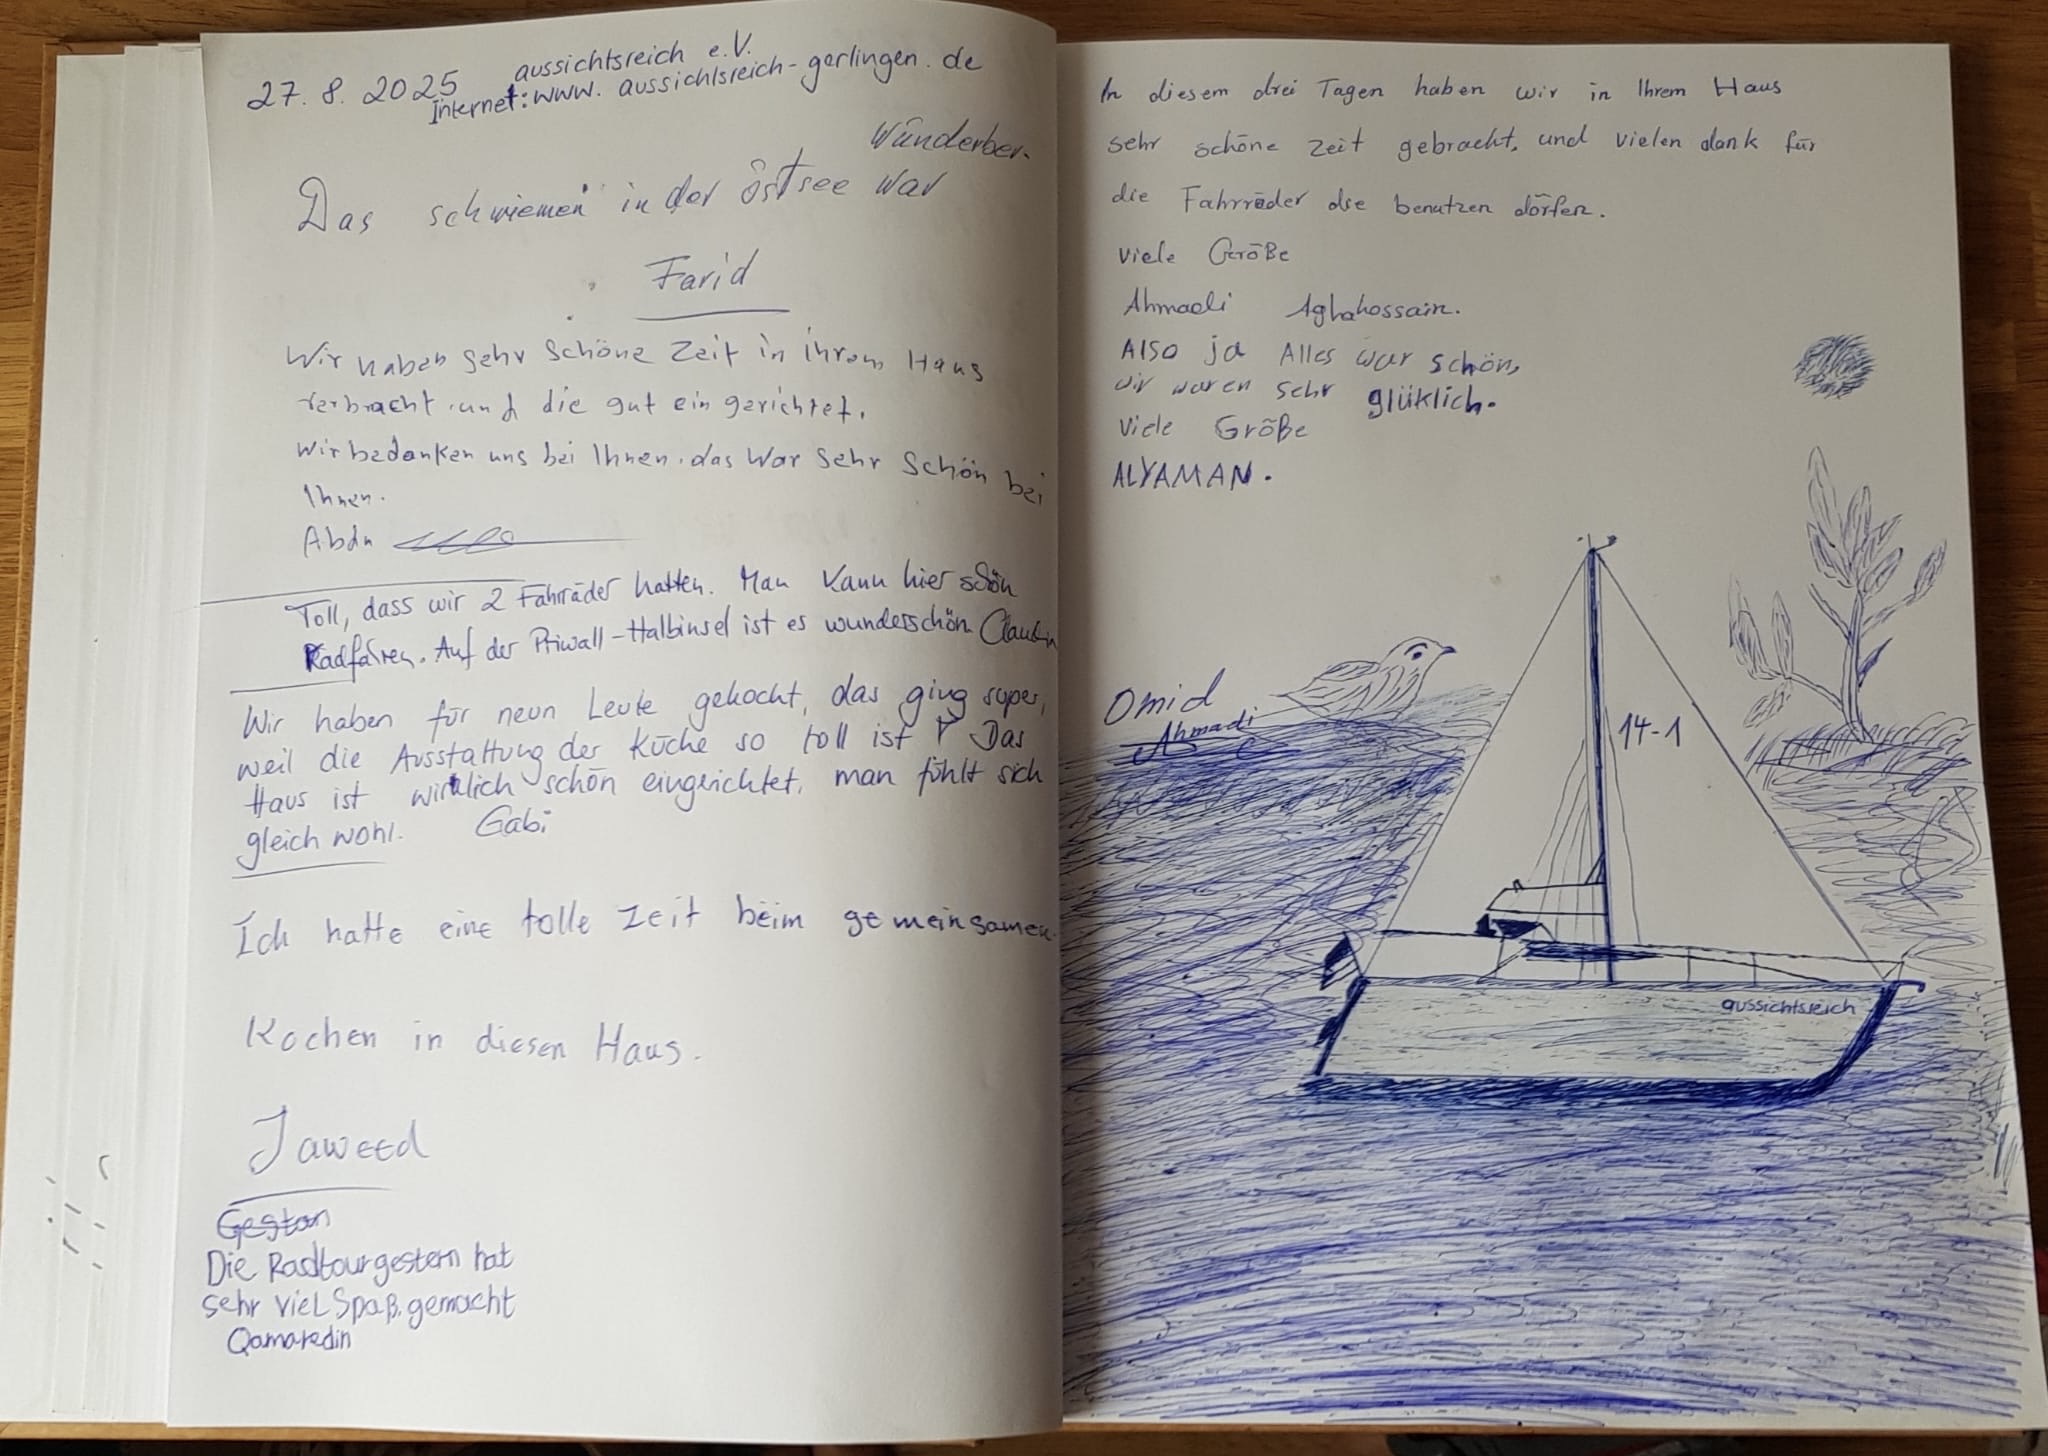 27. 8. 2025 aussichtsreich e.V.
Internet: www.aussichtsreich-gerlingen.de
Wünderber.
Das schwiemen in der östsee war
Farid
Wir haben sehr schöne Zeit in ihrem Haus
verbracht und die gut ein gerichtet.
Wir bedanken uns bei Ihnen. das War sehr schön bei
Ihnen.
Abdu
Toll, dass wir 2 Fahrräder hatten. Man kann hier schön
Radfahren. Auf der Priwall-Halbinsel ist es wunderschön
Wir haben für neun Leute gekocht, das ging super,
weil die Ausstattung der Küche so toll ist! Das
Haus ist wirklich schön eingerichtet, man fühlt sich
gleich wohl. Gabi
Ich hatte eine tolle Zeit beim gemeinsamen
Kochen in diesen Haus.
Jaweed
Gestan
Die Radtour gestern hat
sehr viel Spaß gemacht
Qamaredin
In diesem drei Tagen haben wir in Ihrem Haus
sehr schöne Zeit gebracht, und vielen dank für
die Fahrräder die benutzen dörfen.
Viele Größe
Ahmadi Aghahossain.
Also ja Alles war schön,
wir waren sehr glüklich.
Viele Größe
ALYAMAN.
Omid
Ahmadi
14-1
aussichtsreich